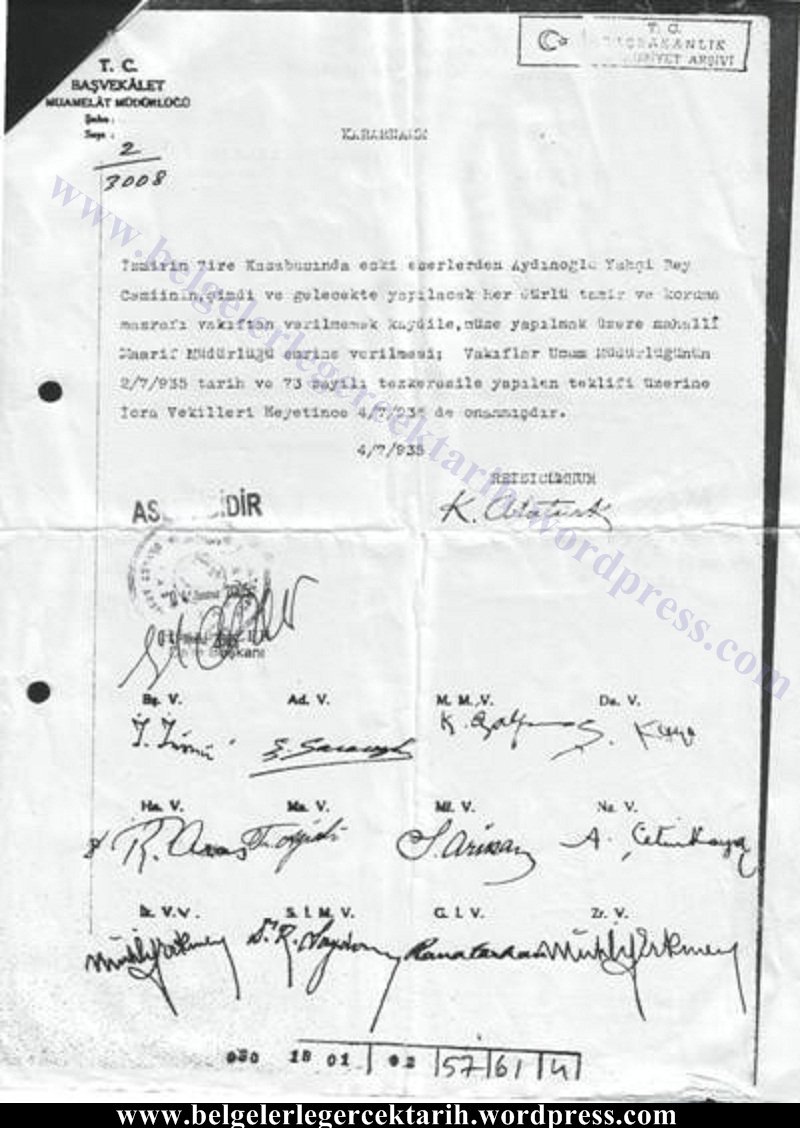 T. C.
BAŞVEKÂLET
MUAMELÂT MÜDÜRLÜĞÜ
Şube :
Sayı :
2
3008
T. C.
BAŞBAKANLIK
ARŞİVİ
KARARNAME
İzmirin Tire Kasabasında eski eserlerden Aydınoglu Yahşi Bey
Camiinin,şimdi ve gelecekte yapılacak her türlü tamir ve koruma
masrafı vakıftan verilmemek kaydile,müze yapılmak üzere mahallî
Maarif Müdürlüğü emrine verilmesi; Vakıflar Umum Müdürlüğünün
2/7/935 tarih ve 73 sayılı tezkeresile yapılan teklifi üzerine
İcra Vekilleri Heyetince 4/7/935 de onanmışdır.
4/7/935
REİSİCUMHUR
K. Atatürk
AS DİR
Başkanı
Bş. V.
Ad. V.
M. M. V.
Da. V.
İ. İnönü
Ş. Saraçoğlu
K. Özalp
Ş. Kaya
Ha. V.
Ma. V.
Mf. V.
Na. V.
R. Aras
S. Arıkan
A. Çetinkaya
İk. V.V.
S. İ. M. V.
G. İ. V.
Zr. V.
Muhlis Erkmen
Dr. R. Saydam
Rana Tarhan
Muhlis Erkmen
030 18 01 02 57 61 4
www.belgelerlegercektarih.wordpress.com
www.belgelerlegercektarih.wordpress.com